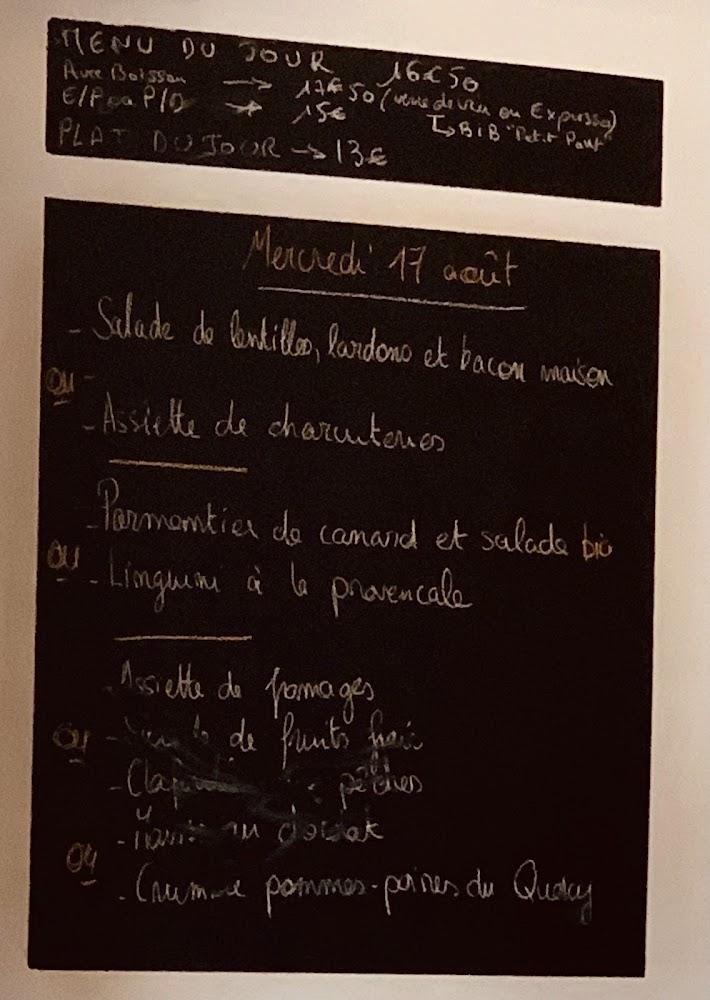 MENU DU JOUR 16€50
Avec Boisson → 17€50 (verre de vin ou Expresso)
E/P ou P/D → 15€ ↳ BIB "Petit Pont"
PLAT DU JOUR → 13€
Mercredi 17 août
- Salade de lentilles, lardons et bacon maison
ou -
- Assiette de charcuteries
- Parmentier de canard et salade bio
ou - Linguini à la provencale
- Assiette de fromages
ou - de fruits frais
- pêches
- au chocolat
ou
- pommes-poires du Quercy